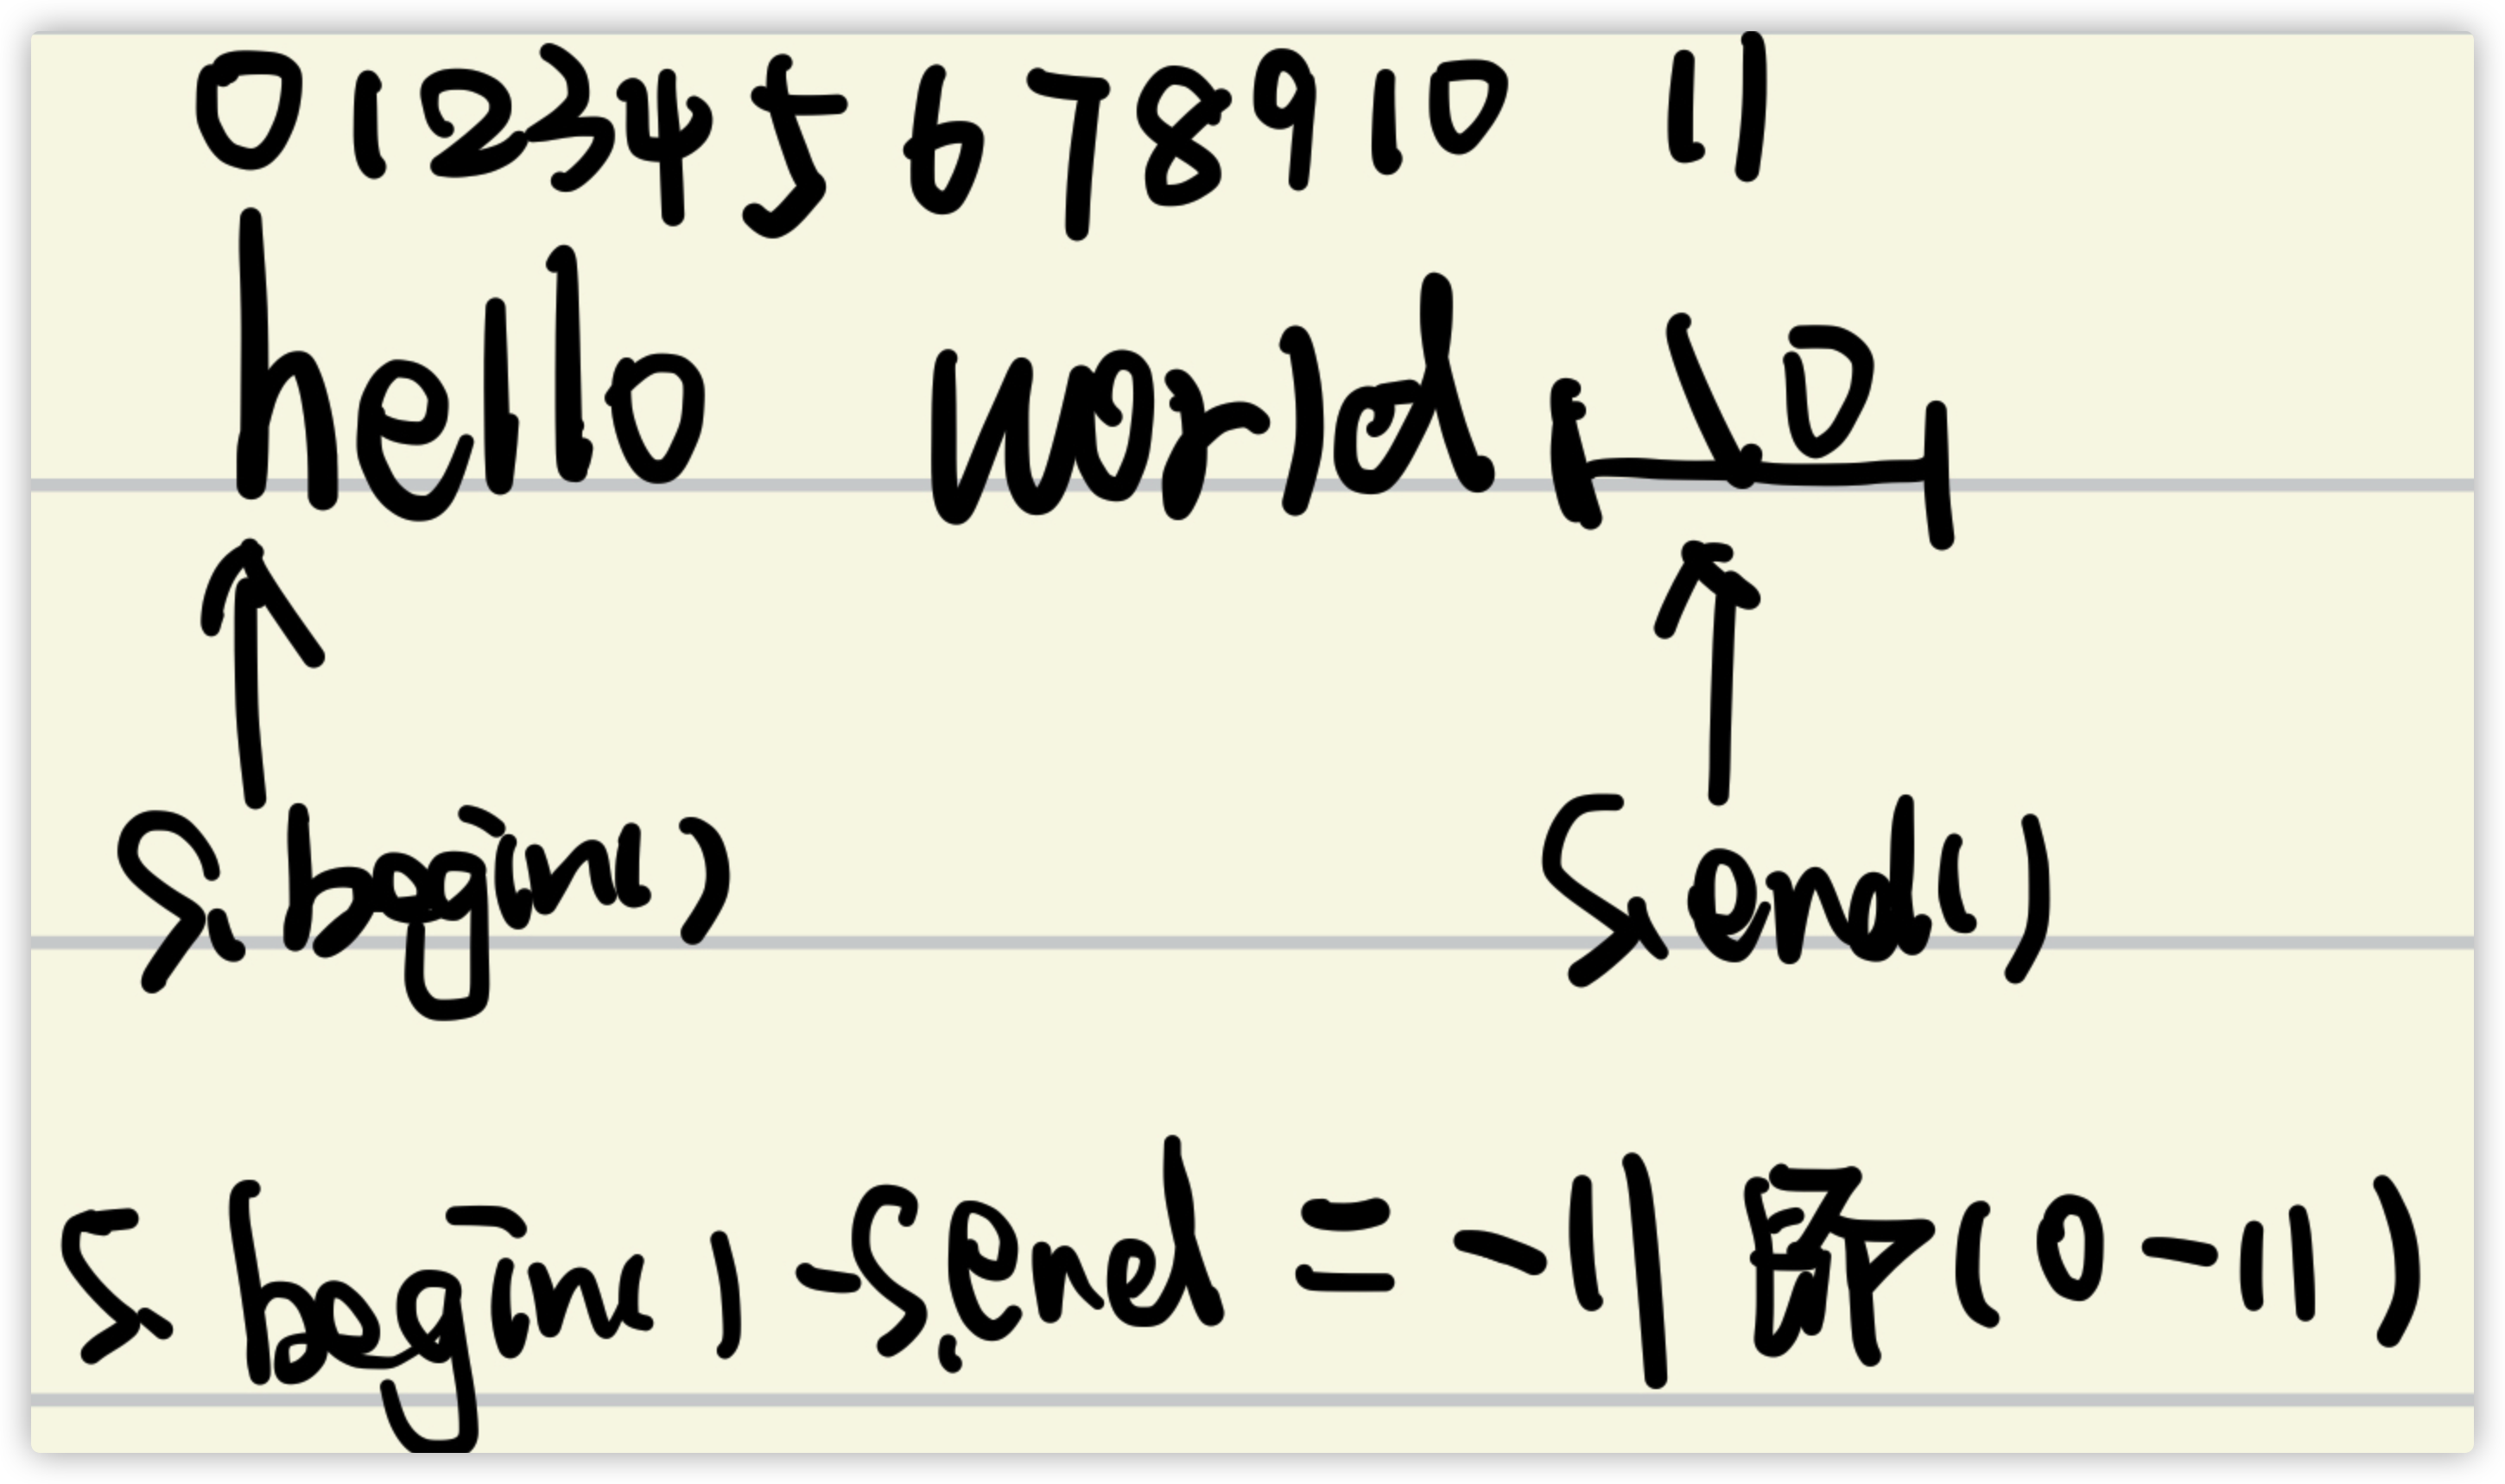 0 1 2 3 4 5 6 7 8 9 10 11
hello world \0
s.begin() s.end()
s.begin() - s.end = -11 即(0-11)